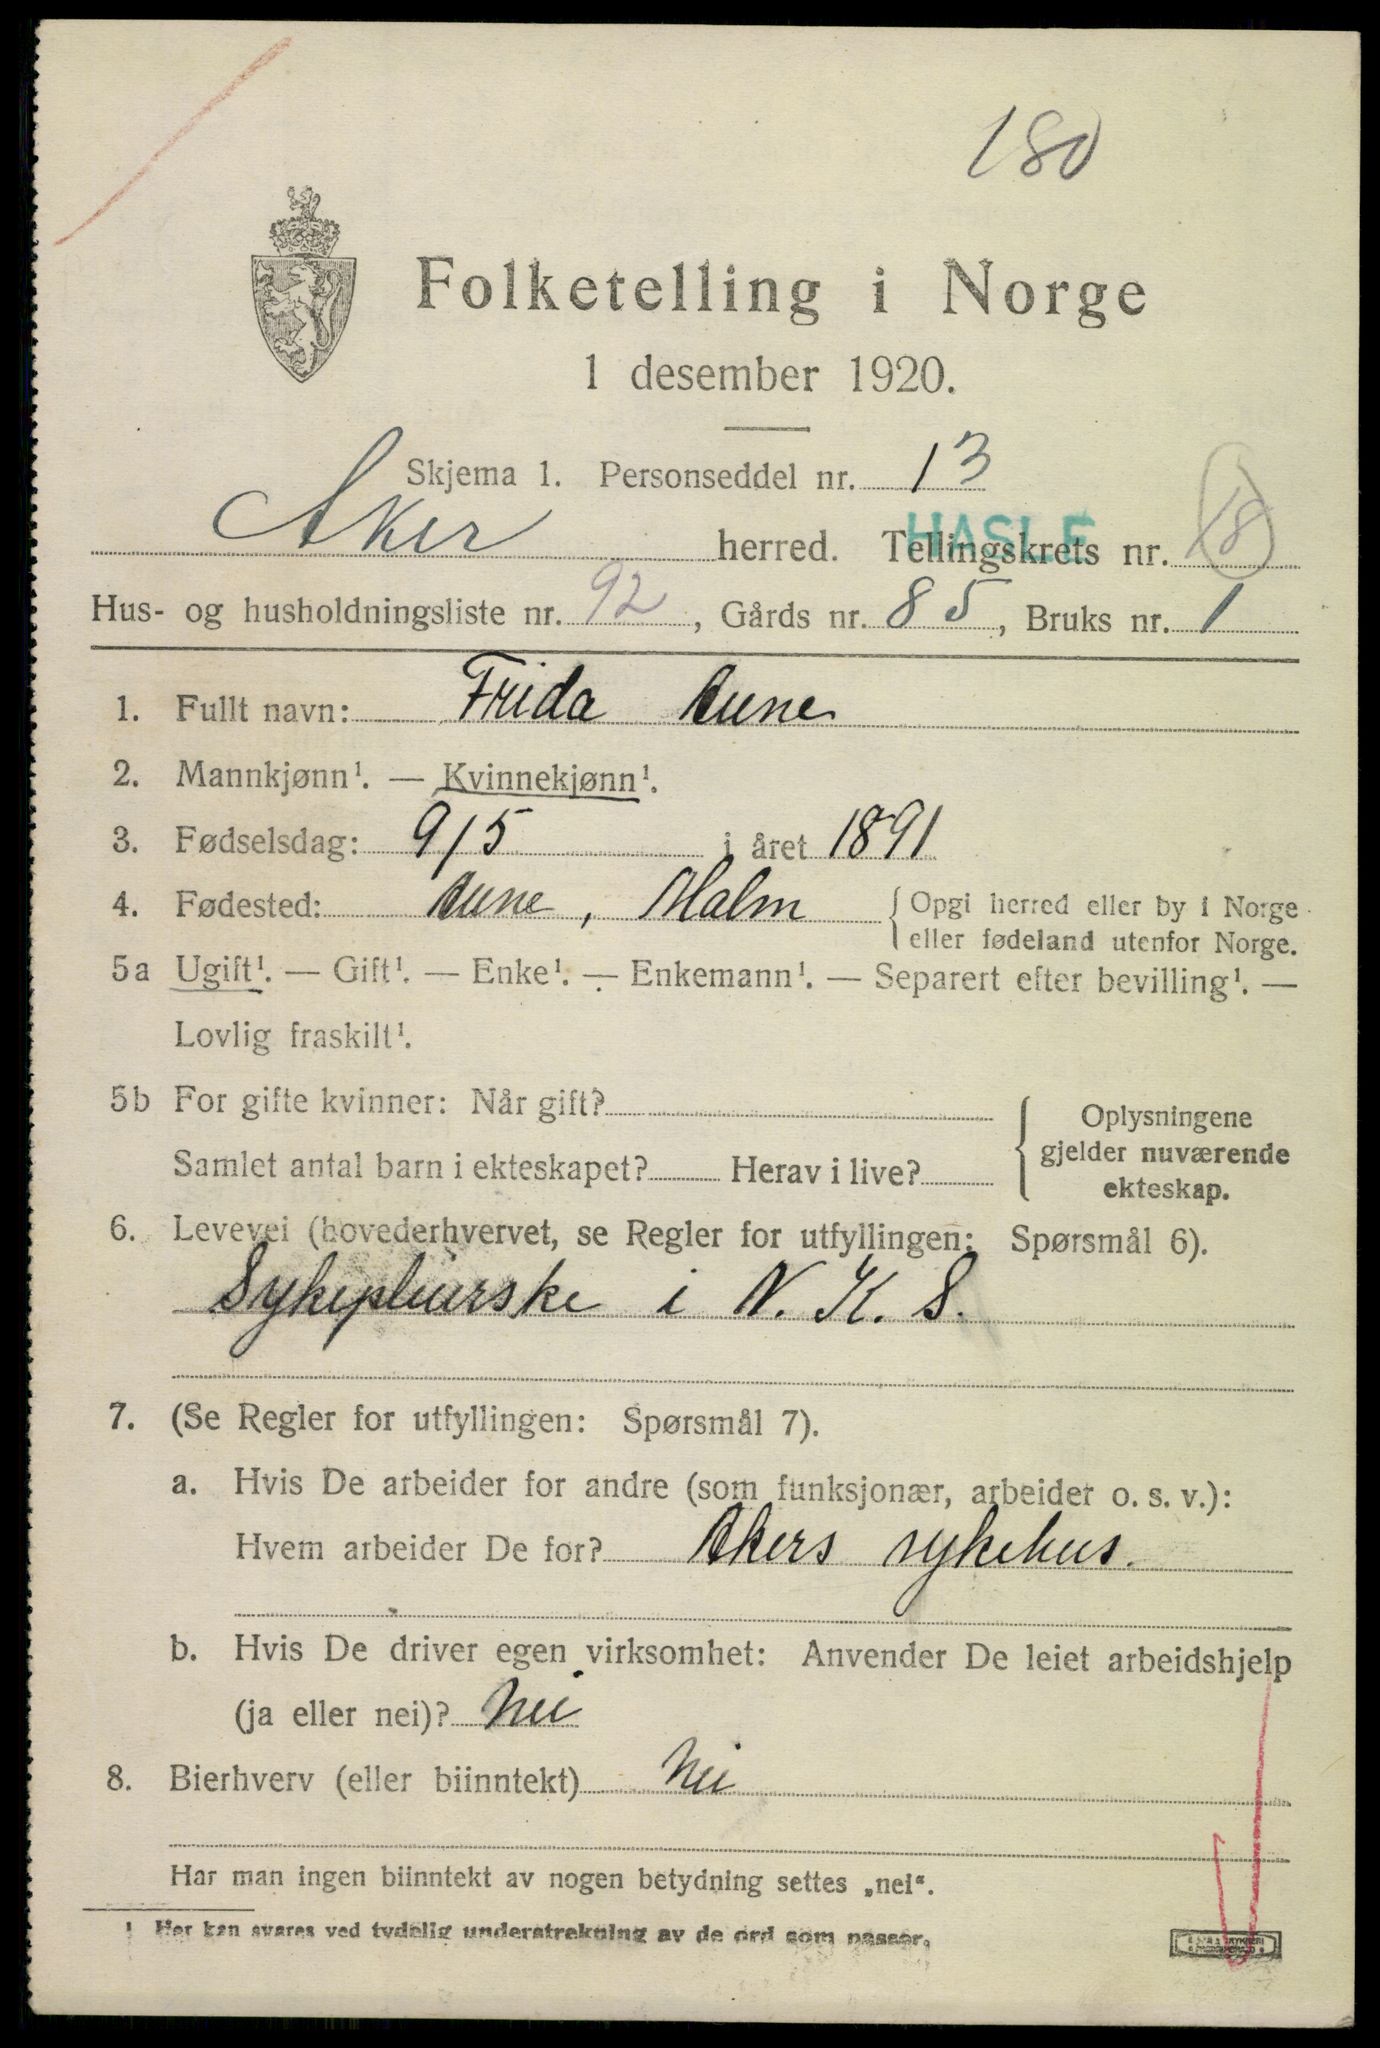 180
Folketelling i Norge
1 desember 1920.
Skjema 1. Personseddel nr. 13
HASLE
Aker herred. Tellingskrets nr. 18
Hus- og husholdningsliste nr. 92, Gårds nr. 85, Bruks nr. 1
1. Fullt navn: Frida Aune
2. Mannkjønn¹. — Kvinnekjønn¹.
3. Fødselsdag: 9/5 i året 1891
4. Fødested: Aune, Malm { Opgi herred eller by i Norge
eller fødeland utenfor Norge.
5a Ugift¹. — Gift¹. — Enke¹. — Enkemann¹. — Separert efter bevilling¹. —
Lovlig fraskilt¹.
5b For gifte kvinner: Når gift?
Samlet antal barn i ekteskapet? Herav i live?
Oplysningene
gjelder nuværende
ekteskap.
6. Levevei (hovederhvervet, se Regler for utfyllingen: Spørsmål 6).
Sykepleierske i N. K. S.
7. (Se Regler for utfyllingen: Spørsmål 7).
a. Hvis De arbeider for andre (som funksjonær, arbeider o. s. v.):
Hvem arbeider De for? Akers sykehus.
b. Hvis De driver egen virksomhet: Anvender De leiet arbeidshjelp
(ja eller nei)? Nei
8. Bierhverv (eller biinntekt) Nei
Har man ingen biinntekt av nogen betydning settes „nei“.
¹ Her kan svares ved tydelig understrekning av de ord som passer.